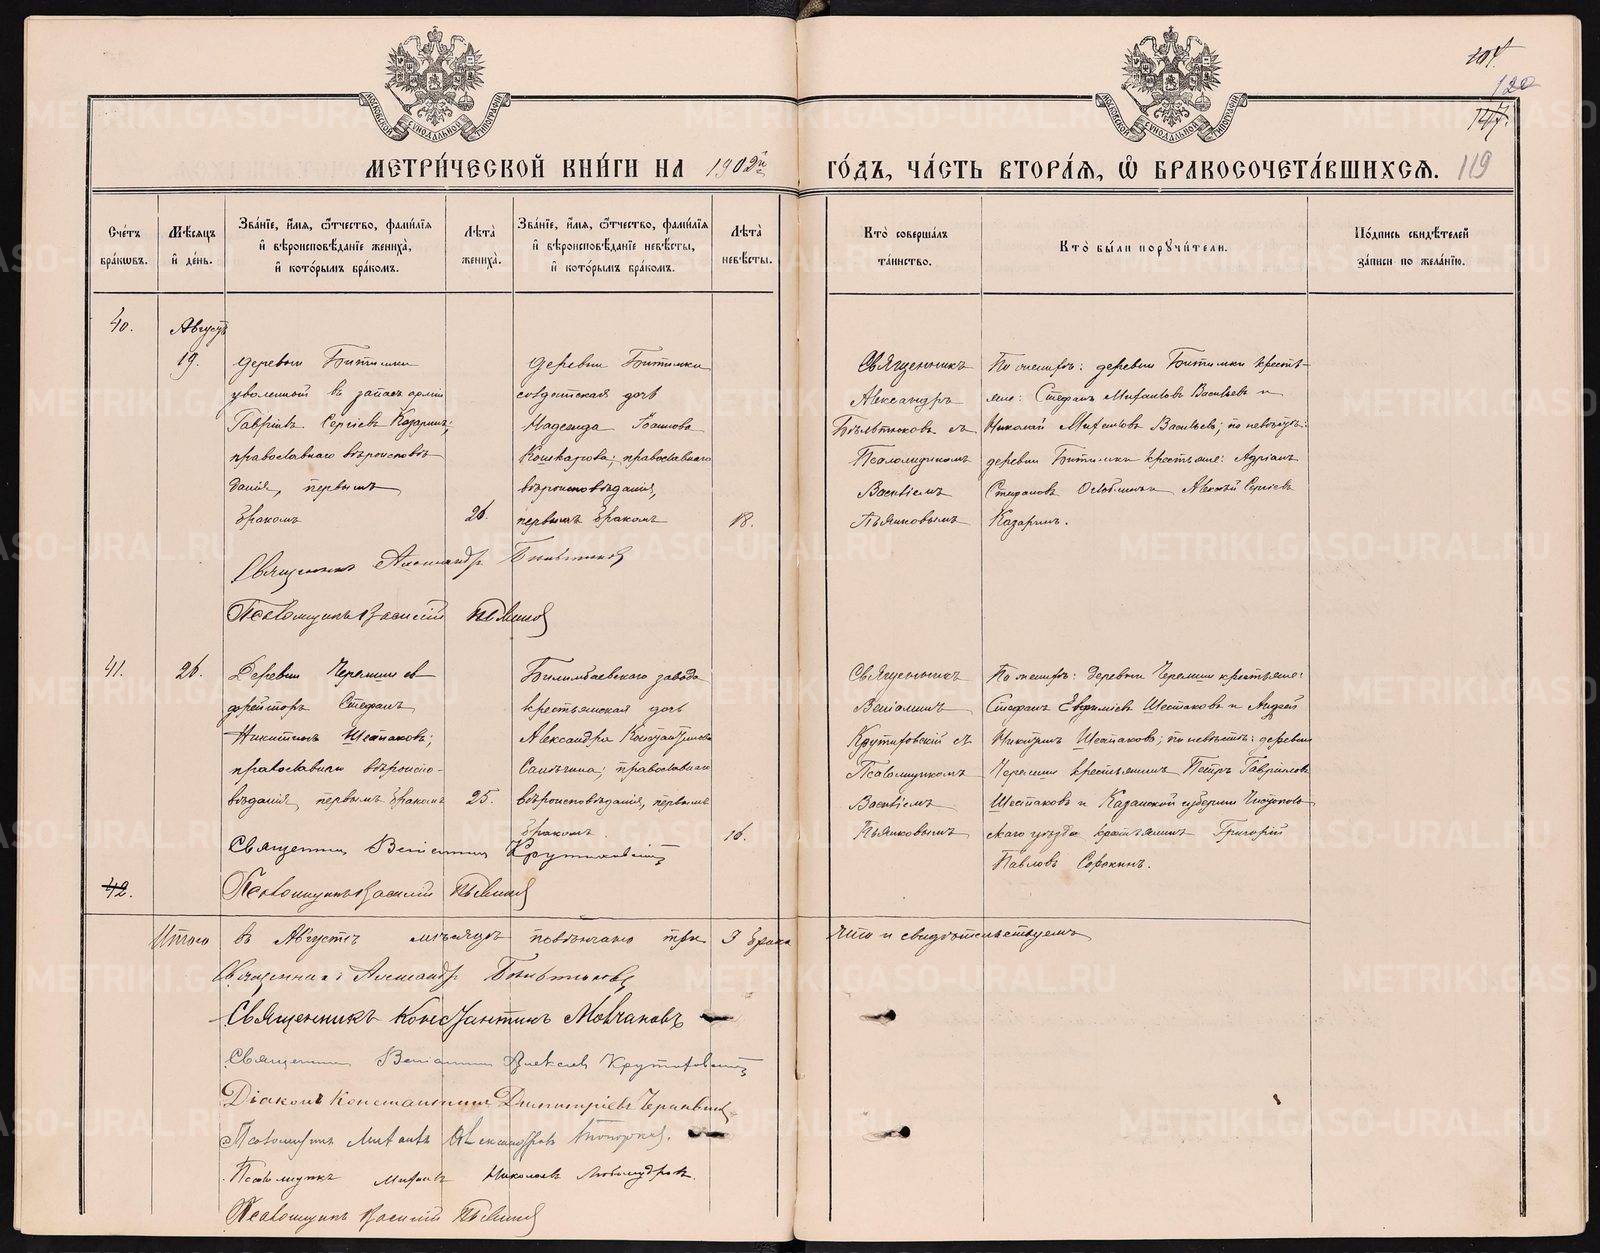 107.
120
147.
МОСКОВСКОЙ СѴНОДАЛЬНОЙ ТИПОГРАФІИ
МОСКОВСКОЙ СѴНОДАЛЬНОЙ ТИПОГРАФІИ
МЕТРИ́ЧЕСКОЙ КНИ́ГИ НА 1902й г. ГО́ДЪ, ЧА́СТЬ ВТОРА́Я, Ѽ БРАКОСОЧЕТА́ВШИХСЯ. 119
Сче́тъ бра́ковъ.
Мѣ́сяцъ и҆ де́нь.
Зва́нїе, и҆́мя, ѻ҆́тчество, фами́лїя и҆ вѣроисповѣ́данїе жениха̀, и҆ кото́рымъ бра́комъ.
Лѣта̀ жениха̀.
Зва́нїе, и҆́мя, ѻ҆́тчество, фами́лїя и҆ вѣроисповѣ́данїе невѣ́сты, и҆ кото́рымъ бра́комъ.
Лѣта̀ невѣ́сты.
Кто̀ соверша́лъ та́инство.
Кто̀ бы́ли пору́чители.
По́дпись свидѣ́телей за́писи по жела́нїю.
40.
Августъ
19.
деревни Битимки
уволенный въ запасъ арміи
Гавріилъ Сергіевъ Казаринъ;
православнаго вѣроисповѣ
данія, первымъ
бракомъ
26.
деревни Битимки
солдатская дочь
Надежда Іоаннова
Кошкарова; православнаго
вѣроисповѣданія,
первымъ бракомъ
18.
Священникъ
Александръ
Бѣльтюковъ съ
Псаломщикомъ
Василіемъ
Пьянковымъ
По женихѣ: деревни Битимки крестья-
не: Стефанъ Михаиловъ Васильевъ и
Николай Михаиловъ Васильевъ; по невѣстѣ:
деревни Битимки крестьяне: Адріанъ
Стефановъ и Алексѣй Сергіевъ
Казаринъ.
Священникъ Александръ Бѣльтюковъ
Псаломщикъ Василій Пьянковъ
41.
26.
Деревни Черемши еф
рейторъ Стефанъ
Никитинъ Шестаковъ;
православнаго вѣроиспо-
вѣданія, первымъ бракомъ
25.
Билимбаевскаго завода
крестьянская дочь
Александра Константинова
православнаго
вѣроисповѣданія, первымъ
бракомъ.
16.
Священникъ
Веніаминъ
Крутиховскій съ
Псаломщикомъ
Василіемъ
Пьянковымъ
По женихѣ: деревни Черемши крестьяне:
Стефанъ Евфиміевъ Шестаковъ и Андрей
Никитинъ Шестаковъ; по невѣстѣ: деревни
Черемши крестьянинъ Петръ Гавріиловъ
Шестаковъ и Казанской губерніи Чистополь
скаго уѣзда крестьянинъ Григорій
Павловъ Сорокинъ.
Священникъ Веніаминъ Крутиховскій
42.
Псаломщикъ Василій Пьянковъ
Итого въ Августѣ мѣсяцѣ повѣнчано три 3 брака что и свидѣтельствуемъ
Священникъ Александръ Бѣльтюковъ
Священникъ Константинъ Молчановъ
Священникъ Веніаминъ Алексѣевъ Крутиховскій
Діаконъ Константинъ Димитріевъ
Псаломщикъ Михаилъ Александровъ
Псаломщикъ Михаилъ Николаевъ Любомудровъ.
Псаломщикъ Василій Пьянковъ
METRIKI.GASO-URAL.RU